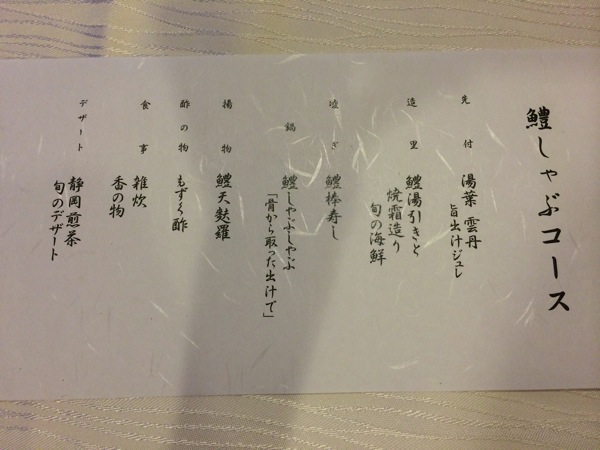 鱧しゃぶコース
先付
湯葉 雲丹
旨出汁ジュレ
造里
鱧湯引きと
焼霜造り
旬の海鮮
凌ぎ
鱧棒寿し
鍋
鱧しゃぶしゃぶ
「骨から取った出汁で」
揚物
鱧天麩羅
酢の物
もずく酢
食事
雑炊
香の物
デザート
静岡煎茶
旬のデザート